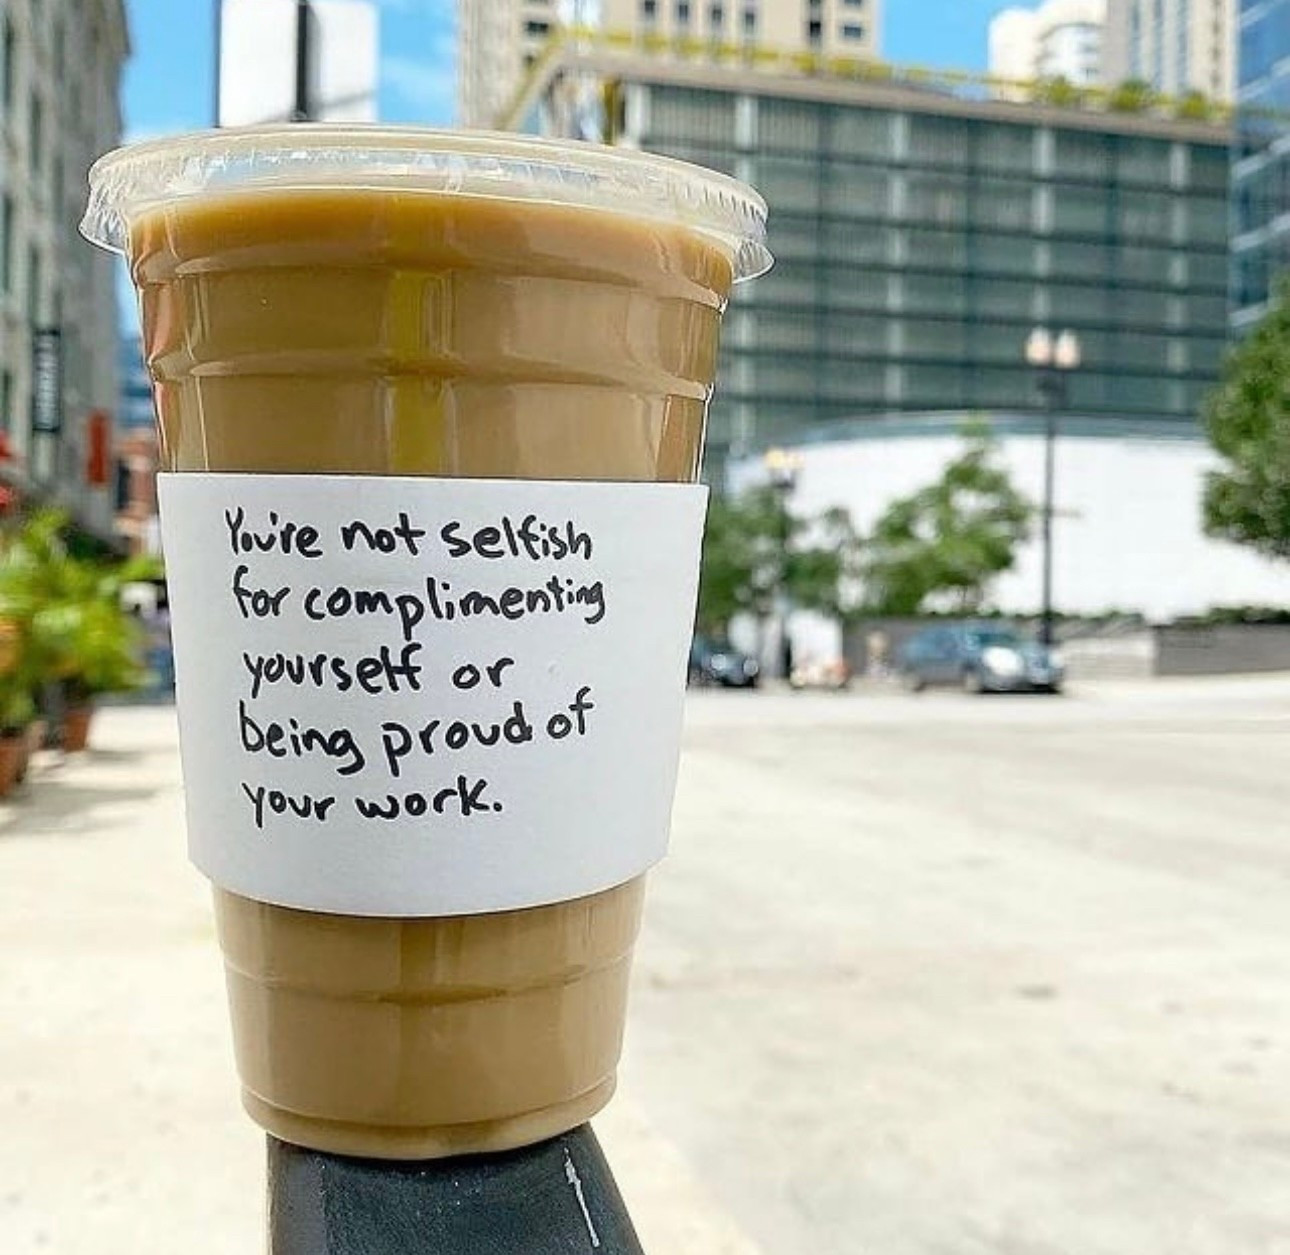 You're not selfish
for complimenting
yourself or
being proud of
your work.